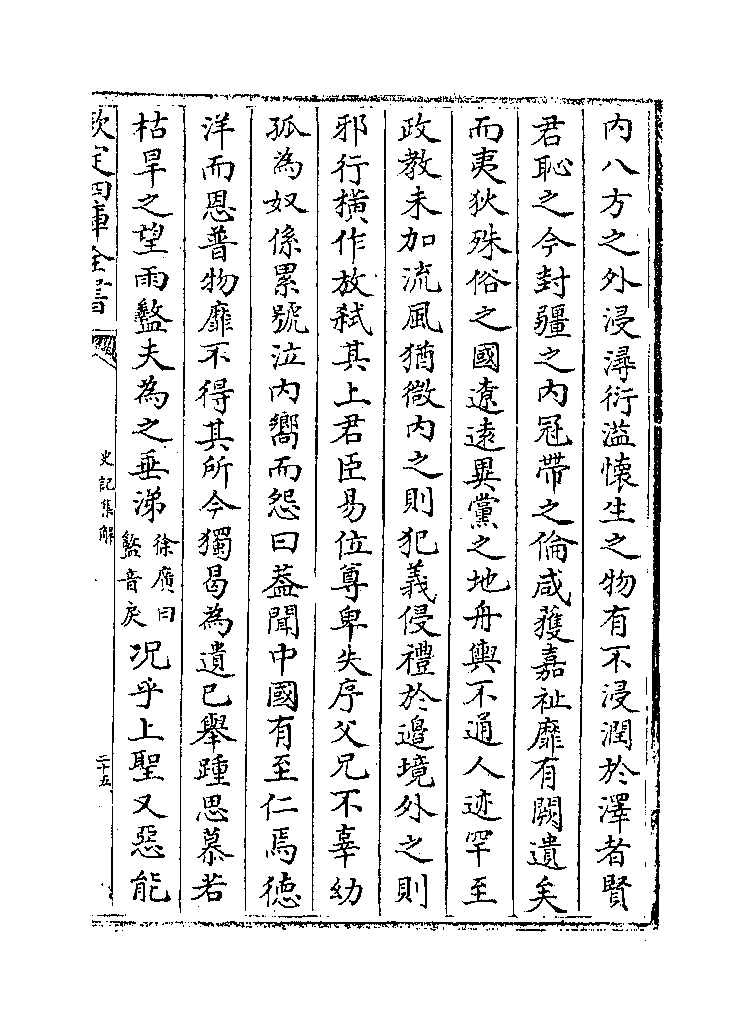 内八方之外浸潯衍溢懐生之物有不浸潤於澤者賢
君恥之今封疆之内冠帶之倫咸獲嘉祉靡有闕遺矣
而夷狄殊俗之國遼逺異黨之地舟輿不通人迹罕至
政教未加流風猶微内之則犯義侵禮於邊境外之則
邪行横作放弑其上君臣易位尊卑失序父兄不辜幼
孤為奴係累號泣内嚮而怨曰葢聞中國有至仁焉徳
洋而恩普物靡不得其所今獨曷為遺已舉踵思慕若
枯旱之望雨盭夫為之垂涕徐廣曰盭音戾况乎上聖又惡能
欽定四庫全書
史記集解
二十五